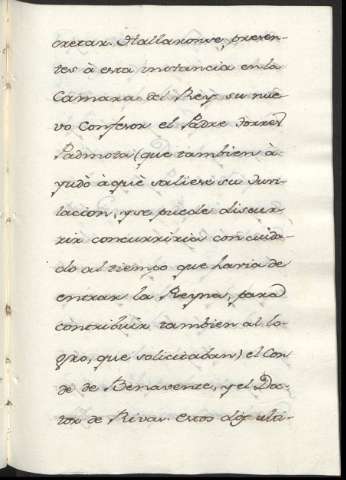 cretar. Hallaronse, presen-
tes à esta instancia en la
Camara del Rey su nue-
vo Confesor el Padre Torres
Padmota (que tambien à-
yudò àque saliese su Juvi-
lacion, y se puede discur-
rir concurriria con cuida-
do al tiempo que havia de
entrar la Reyna, para
contribuir tambien al lo-
gro, que solicitaban) el Con-
de de Benavente, y el Doc-
tor de Riva. Estos dos ulti-